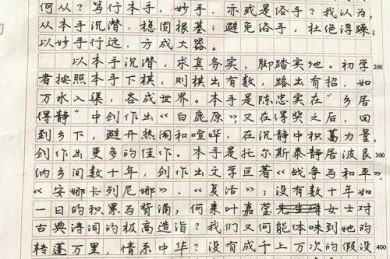 何从？笃行本手，妙手，亦或是洛手？我认为，
从本手沉潜，稳固根基；避免洛手，杜绝浮躁；
以妙手行远，方成大器。
以本手沉潜，求真务实，脚踏实地。初学 200
者按照本手下棋，则棋出有数，路出有招，如
万水入渠，各成世界。本手是陈忠实在“乡居
得静”中创作出《白鹿原》又在得奖之后，回
到乡下，避开热闹和喧哗，在沉静中积蓄力量，
创作出更多的佳作。本手是托尔斯泰静居波良 300
纳乡间数十年，创作出文学巨著《战争与和平》
《安娜卡列尼娜》、《复活》；没有数十年如
一日的积累与背诵，何来叶嘉莹女士对
古典诗词的极高造诣？我们又何能体味到她的
转蓬万里，情系中华？没有成千上万次的假设 400